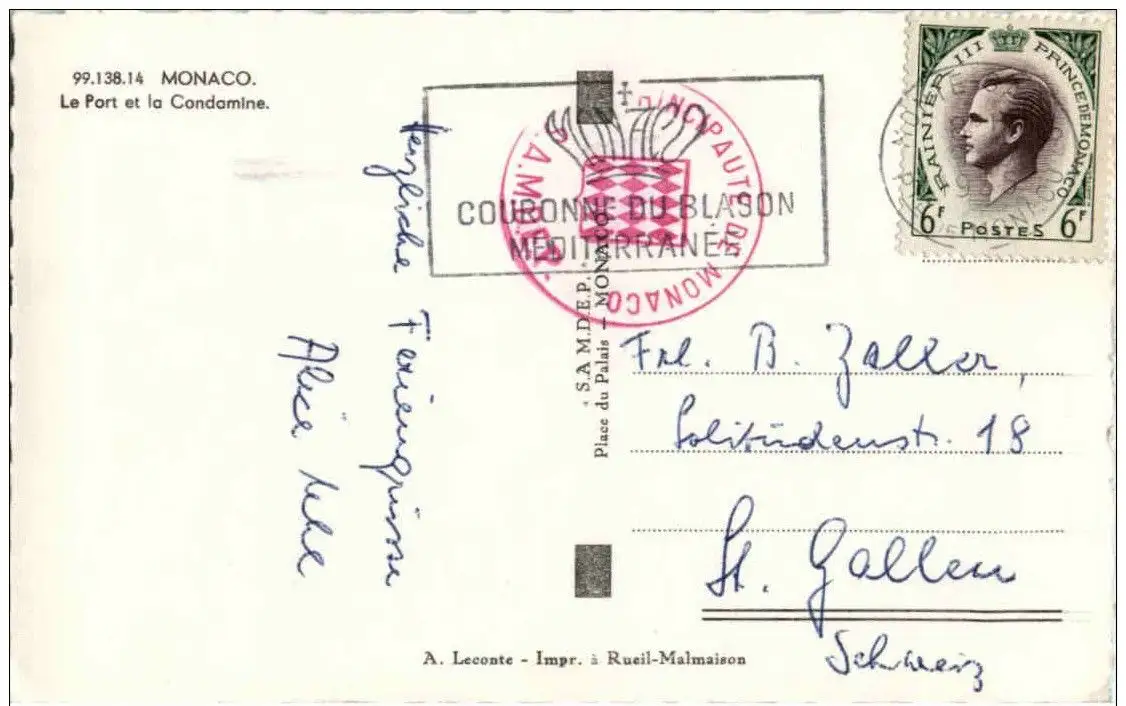 99.138.14 MONACO.
Le Port et la Condamine.
Herzliche Feriengrüsse
Alice
COURONNE DU BLASON
MÉDITERRANÉE
PRINCIPAUTÉ DE MONACO
S.A.M.D.E.P.
Place du Palais — MONACO
RAINIER III PRINCE DE MONACO
6F POSTES 6F
Frl. B. Zaller,
Solitüdenstr. 18
St. Gallen
Schweiz
A. Leconte - Impr. à Rueil-Malmaison